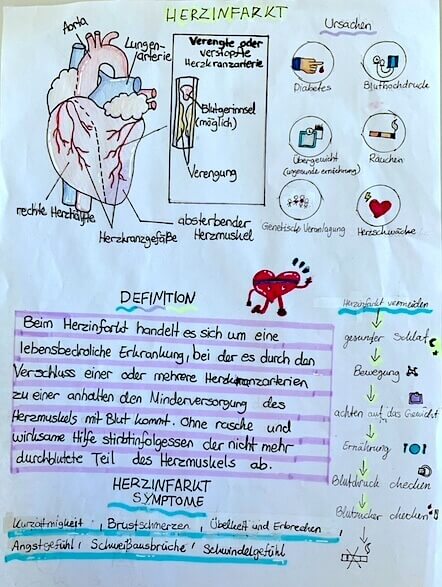 HERZINFARKT
Aorta
Lungen-
arterie
rechte Herzhälfte
Herzkranzgefäße
absterbender
Herzmuskel
Verengte oder
verstopfte
Herzkranzarterie
Blutgerinnsel
(möglich)
Verengung
Ursachen
Diabetes
Bluthochdruck
Übergewicht
(ungesunde ernährung)
Rauchen
Genetische Veranlagung
Herzschwäche
DEFINITION
Beim Herzinfarkt handelt es sich um eine
lebensbedrohliche Erkrankung, bei der es durch den
Verschluss einer oder mehrere Herzkranzarterien
zu einer anhalten den Minderversorgung des
Herzmuskels mit Blut kommt. Ohne rasche und
wirksame Hilfe stirbt infolgessen der nicht mehr
durchblutete Teil des Herzmuskels ab.
HERZINFARKT
SYMPTOME
Kurzatmigkeit, Brustschmerzen, Übelkeit und Erbrechen,
Angstgefühl, Schweißausbrüche, Schwindelgefühl
Herzinfarkt vermeiden
gesunder Schlaf
Bewegung
achten auf das Gewicht
Ernährung
Blutdruck checken
Blutzucker checken